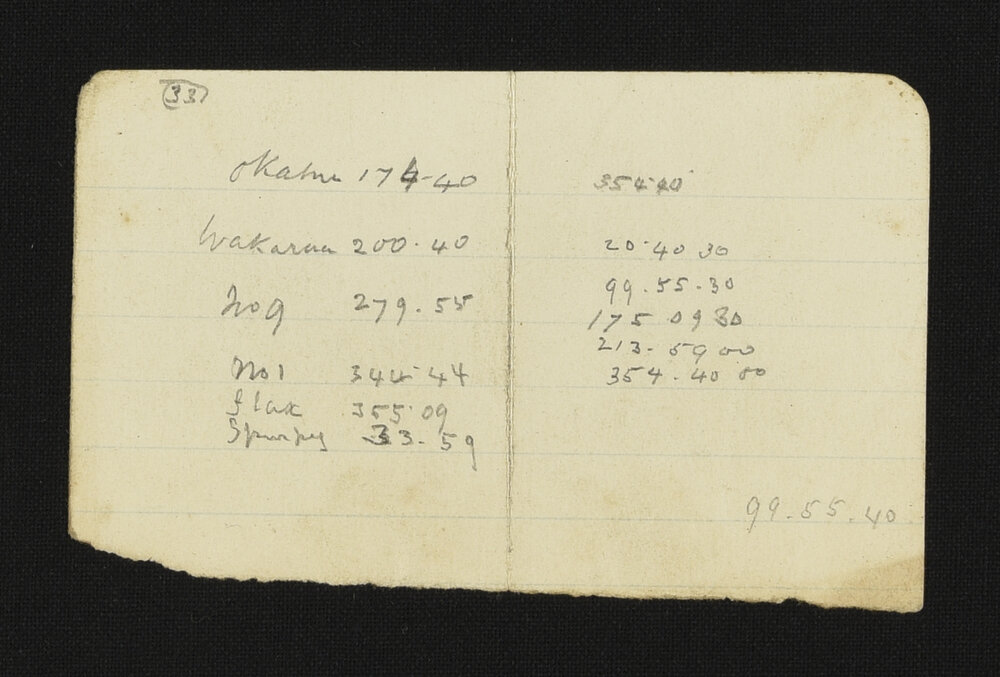 33
Okatu 174.40
Wakarua 200.40
No 9 279.55
No 1 344.44
flax 355.09
33.59
354.40
20.40 30
99.55.30
175 09 30
213.59 00
354.40 00
99.55.40